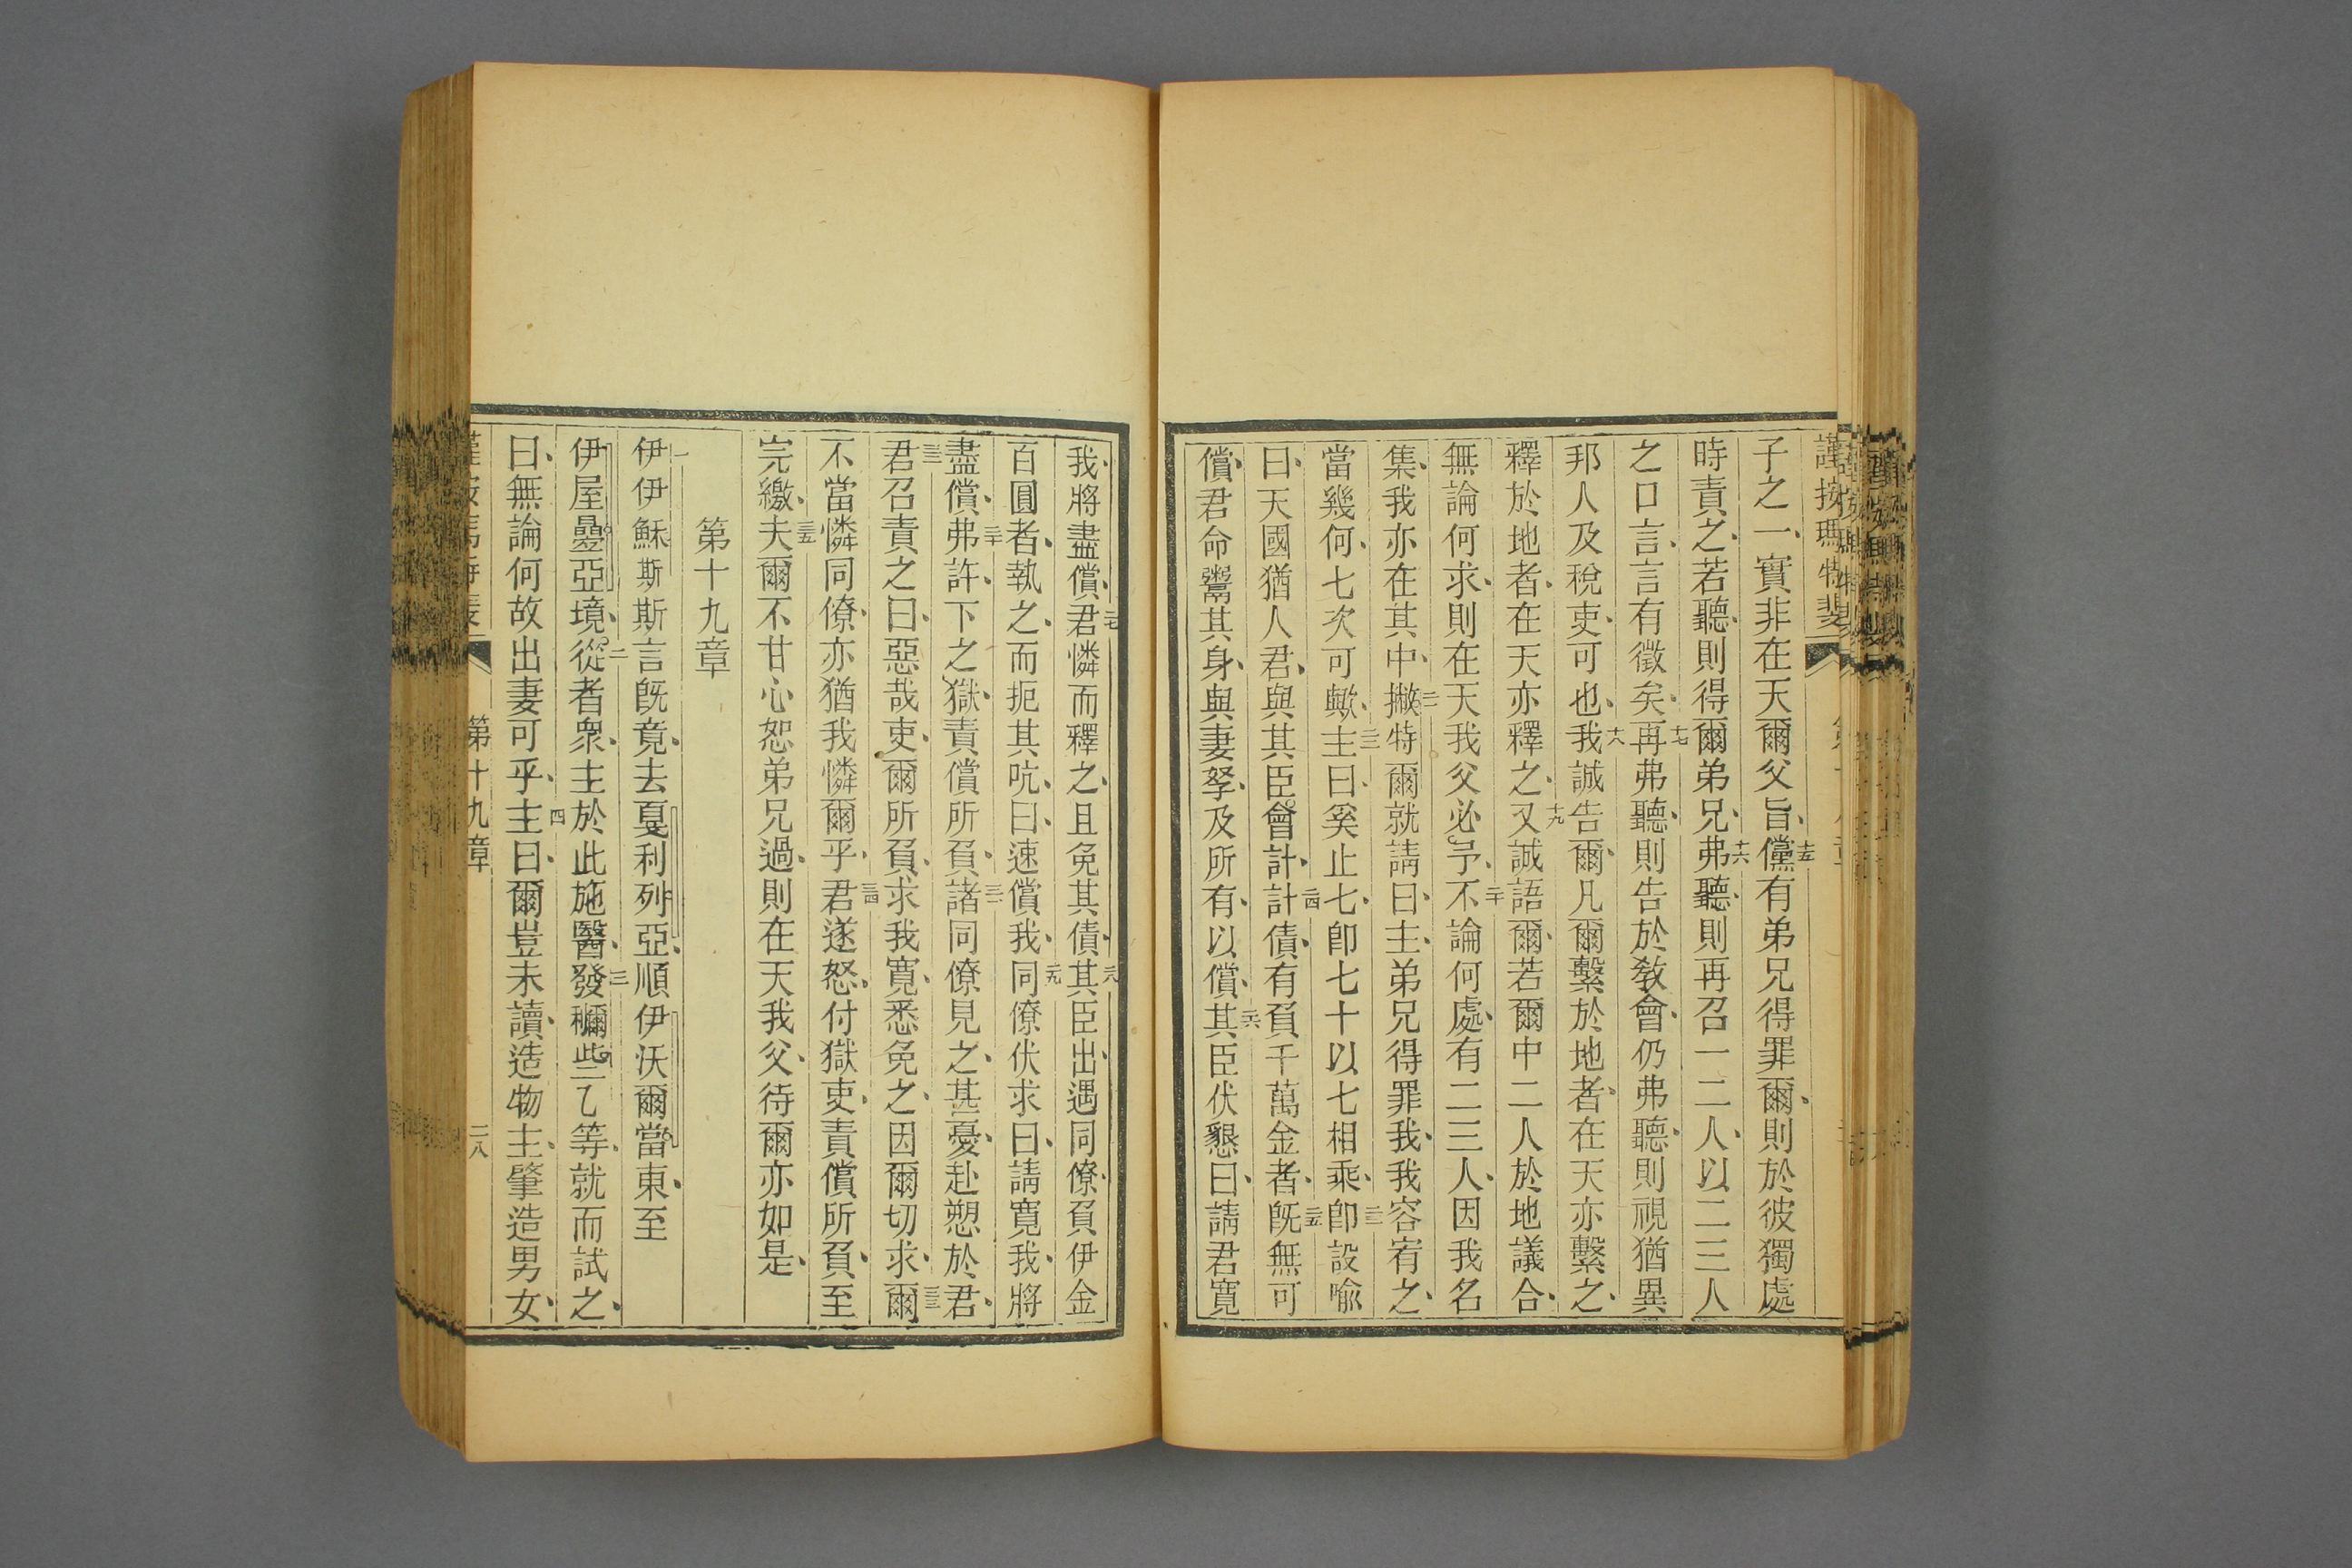 謹按瑪特斐
子之一、實非在天爾父旨、十五儻有弟兄得罪爾、則於彼獨處
時責之、若聽、則得爾弟兄、十六弗聽、則再召一二人、以二三人
之口言、言有徵矣、十七再弗聽、則告於敎會、仍弗聽、則視猶異
邦人及稅吏可也、十八我誠告爾、凡爾繫於地者、在天亦繫之、
釋於地者、在天亦釋之、十九又誠語爾、若爾中二人於地議合、
無論何求、則在天我父必予、二十不論何處、有二三人、因我名
集、我亦在其中、二一撇特爾就請曰、主、弟兄得罪我、我容宥之、
當幾何、七次可歟、二二主曰、奚止七、卽七十以七相乘、二三卽設喻
曰、天國猶人君、與其臣會計、二四計債、有負千萬金者、二五旣無可
償、君命鬻其身、與妻孥、及所有、以償、二六其臣伏懇曰、請君寬
我、將盡償、二七君憐而釋之、且免其債、二八其臣出、遇同僚負伊金
百圓者、執之、而扼其吭、曰、速償我、二九同僚伏求曰、請寬我、將
盡償、三十弗許、下之獄、責償所負、三一諸同僚見之、甚憂、赴愬於君、
三二君召責之曰、惡哉吏、爾所負、求我寬、悉免之、因爾切求、三三爾
不當憐同僚、亦猶我憐爾乎、三四君遂怒、付獄吏、責償所負、至
完繳、三五夫爾不甘心恕弟兄過、則在天我父、待爾亦如是、
第十九章
一伊伊穌斯斯言旣竟、去戛利列亞、順伊沃爾當東、至
伊屋疊亞境、二從者衆、主於此施醫、三發穪些乙等、就而試之、
曰、無論何故出妻可乎、四主曰、爾豈未讀造物主、肇造男女、
第十九章
二八